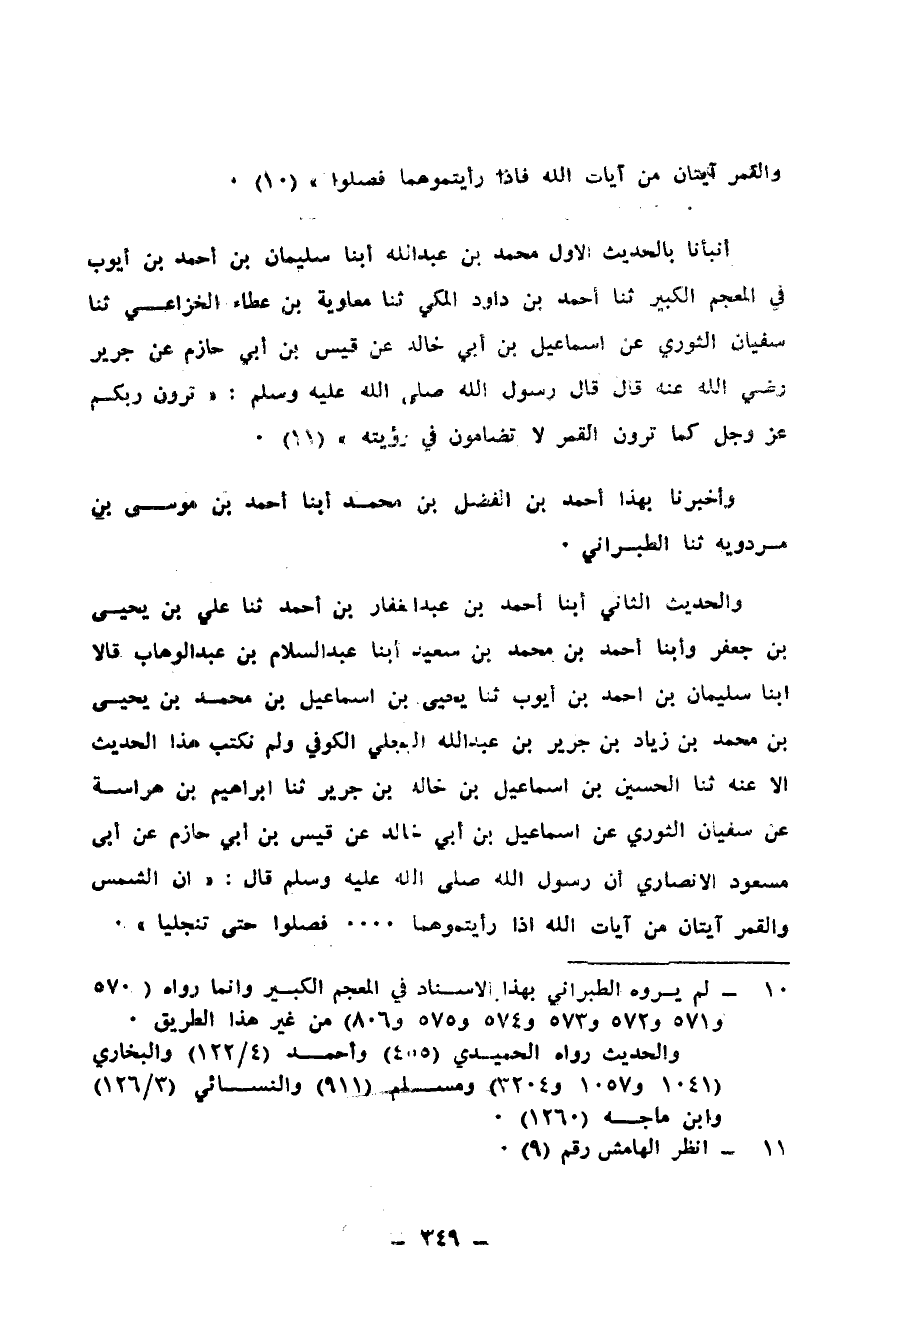 والقمر آيتان من آيات الله فاذا رأيتموهما فصلوا » (١٠) ٠
أنبأنا بالحديث الاول محمد بن عبدالله أبنا سليمان بن أحمد بن أيوب
في المعجم الكبير ثنا أحمد بن داود المكي ثنا معاوية بن عطاء الخزاعــــي ثنا
سفيان الثوري عن اسماعيل بن أبي خالد عن قيس بن أبي حازم عن جرير
رضي الله عنه قال قال رسول الله صلى الله عليه وسلم : « ترون ربكــم
عز وجل كما ترون القمر لا تضامون في رؤيته » (١١) ٠
وأخبرنا بهذا أحمد بن الفضل بن محمــد أبنا أحمد بن موســـى بن
مــردويه ثنا الطبــراني ٠
والحديث الثاني أبنا أحمد بن عبدالغفار بن أحمد ثنا علي بن يحيــى
بن جعفر وأبنا أحمد بن محمد بن سعيد أبنا عبدالسلام بن عبدالوهاب قالا
ابنا سليمان بن احمد بن أيوب ثنا يحيى بن اسماعيل بن محمــد بن يحيــى
بن محمد بن زياد بن جرير بن عبدالله البجلي الكوفي ولم نكتب هذا الحديث
الا عنه ثنا الحسين بن اسماعيل بن خالد بن جرير ثنا ابراهيم بن هراســة
عن سفيان الثوري عن اسماعيل بن أبي خالد عن قيس بن أبي حازم عن أبى
مسعود الانصاري أن رسول الله صلى الله عليه وسلم قال : « ان الشمس
والقمر آيتان من آيات الله اذا رأيتموهما ٠٠٠٠ فصلوا حتى تنجليا » ٠
١٠ ــ لم يــروه الطبراني بهذا الاســناد في المعجم الكبــير وانما رواه ( ٥٧٠
و٥٧١ و٥٧٢ و٥٧٣ و٥٧٤ و٥٧٥ و٨٠٦) من غير هذا الطريق ٠
والحديث رواه الحميــدي (٤٥٥) وأحمــــد (١٢٢/٤) والبخاري
(١٠٤١ و١٠٥٧ و٣٢٠٤) ومســـلم (٩١١) والنســـائي (١٢٦/٣)
وابن ماجـــه (١٢٦٠) ٠
١١ ــ انظر الهامش رقم (٩) ٠
ــ ٣٤٩ ــ